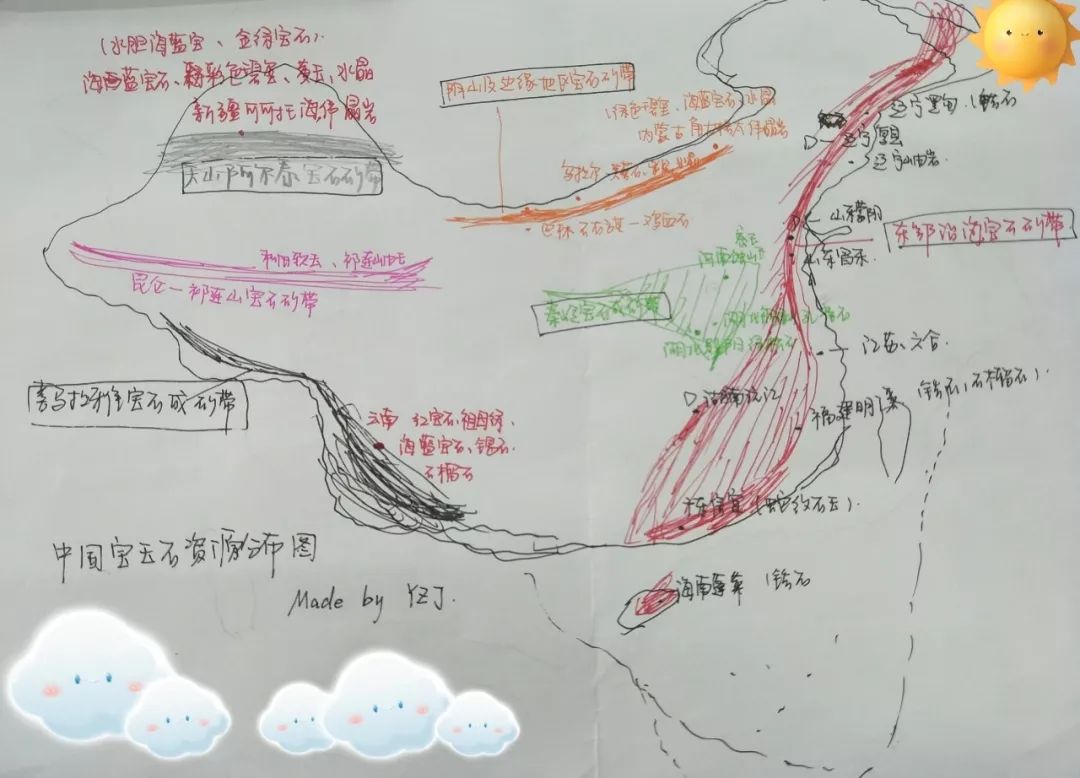 (水胆海蓝宝、金绿宝石).
海蓝宝石、彩色碧玺、黄玉、水晶
新疆可可托海伟晶岩
天山阿尔泰宝石矿带
阴山及边缘地区宝石矿带
(绿色碧玺、海蓝宝石、水晶
内蒙古角力格太伟晶岩
乌拉尔
巴林石矿 — 鸡血石
和田软玉、祁连山玉
昆仑—祁连山宝石矿带
喜马拉雅宝石成矿带
云南 红宝石、祖母绿、
海蓝宝石、锂石.
石榴石
秦岭宝石成矿带
辽宁
辽宁
辽宁岫岩.
山东蒙阴
山东昌乐.
东部沿海宝石矿带
江苏、六合.
D 湖南沅江
福建明溪 (锆石,石榴石).
广东信宜 (蛇纹石玉).
海南蓬莱 (锆石
中国宝玉石资源分布图
Made by YZJ.